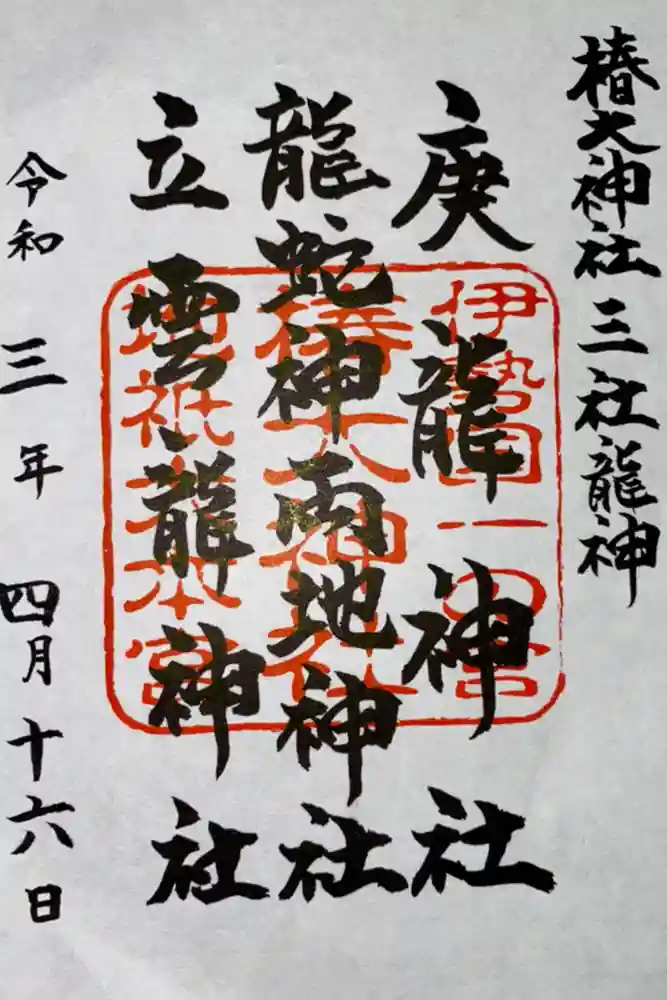 椿大神社三社龍神
庚龍神社
龍蛇神雨地神社
立雲龍神社
令和三年四月十六日
伊勢国一の宮
椿大神社
地祇大本宮